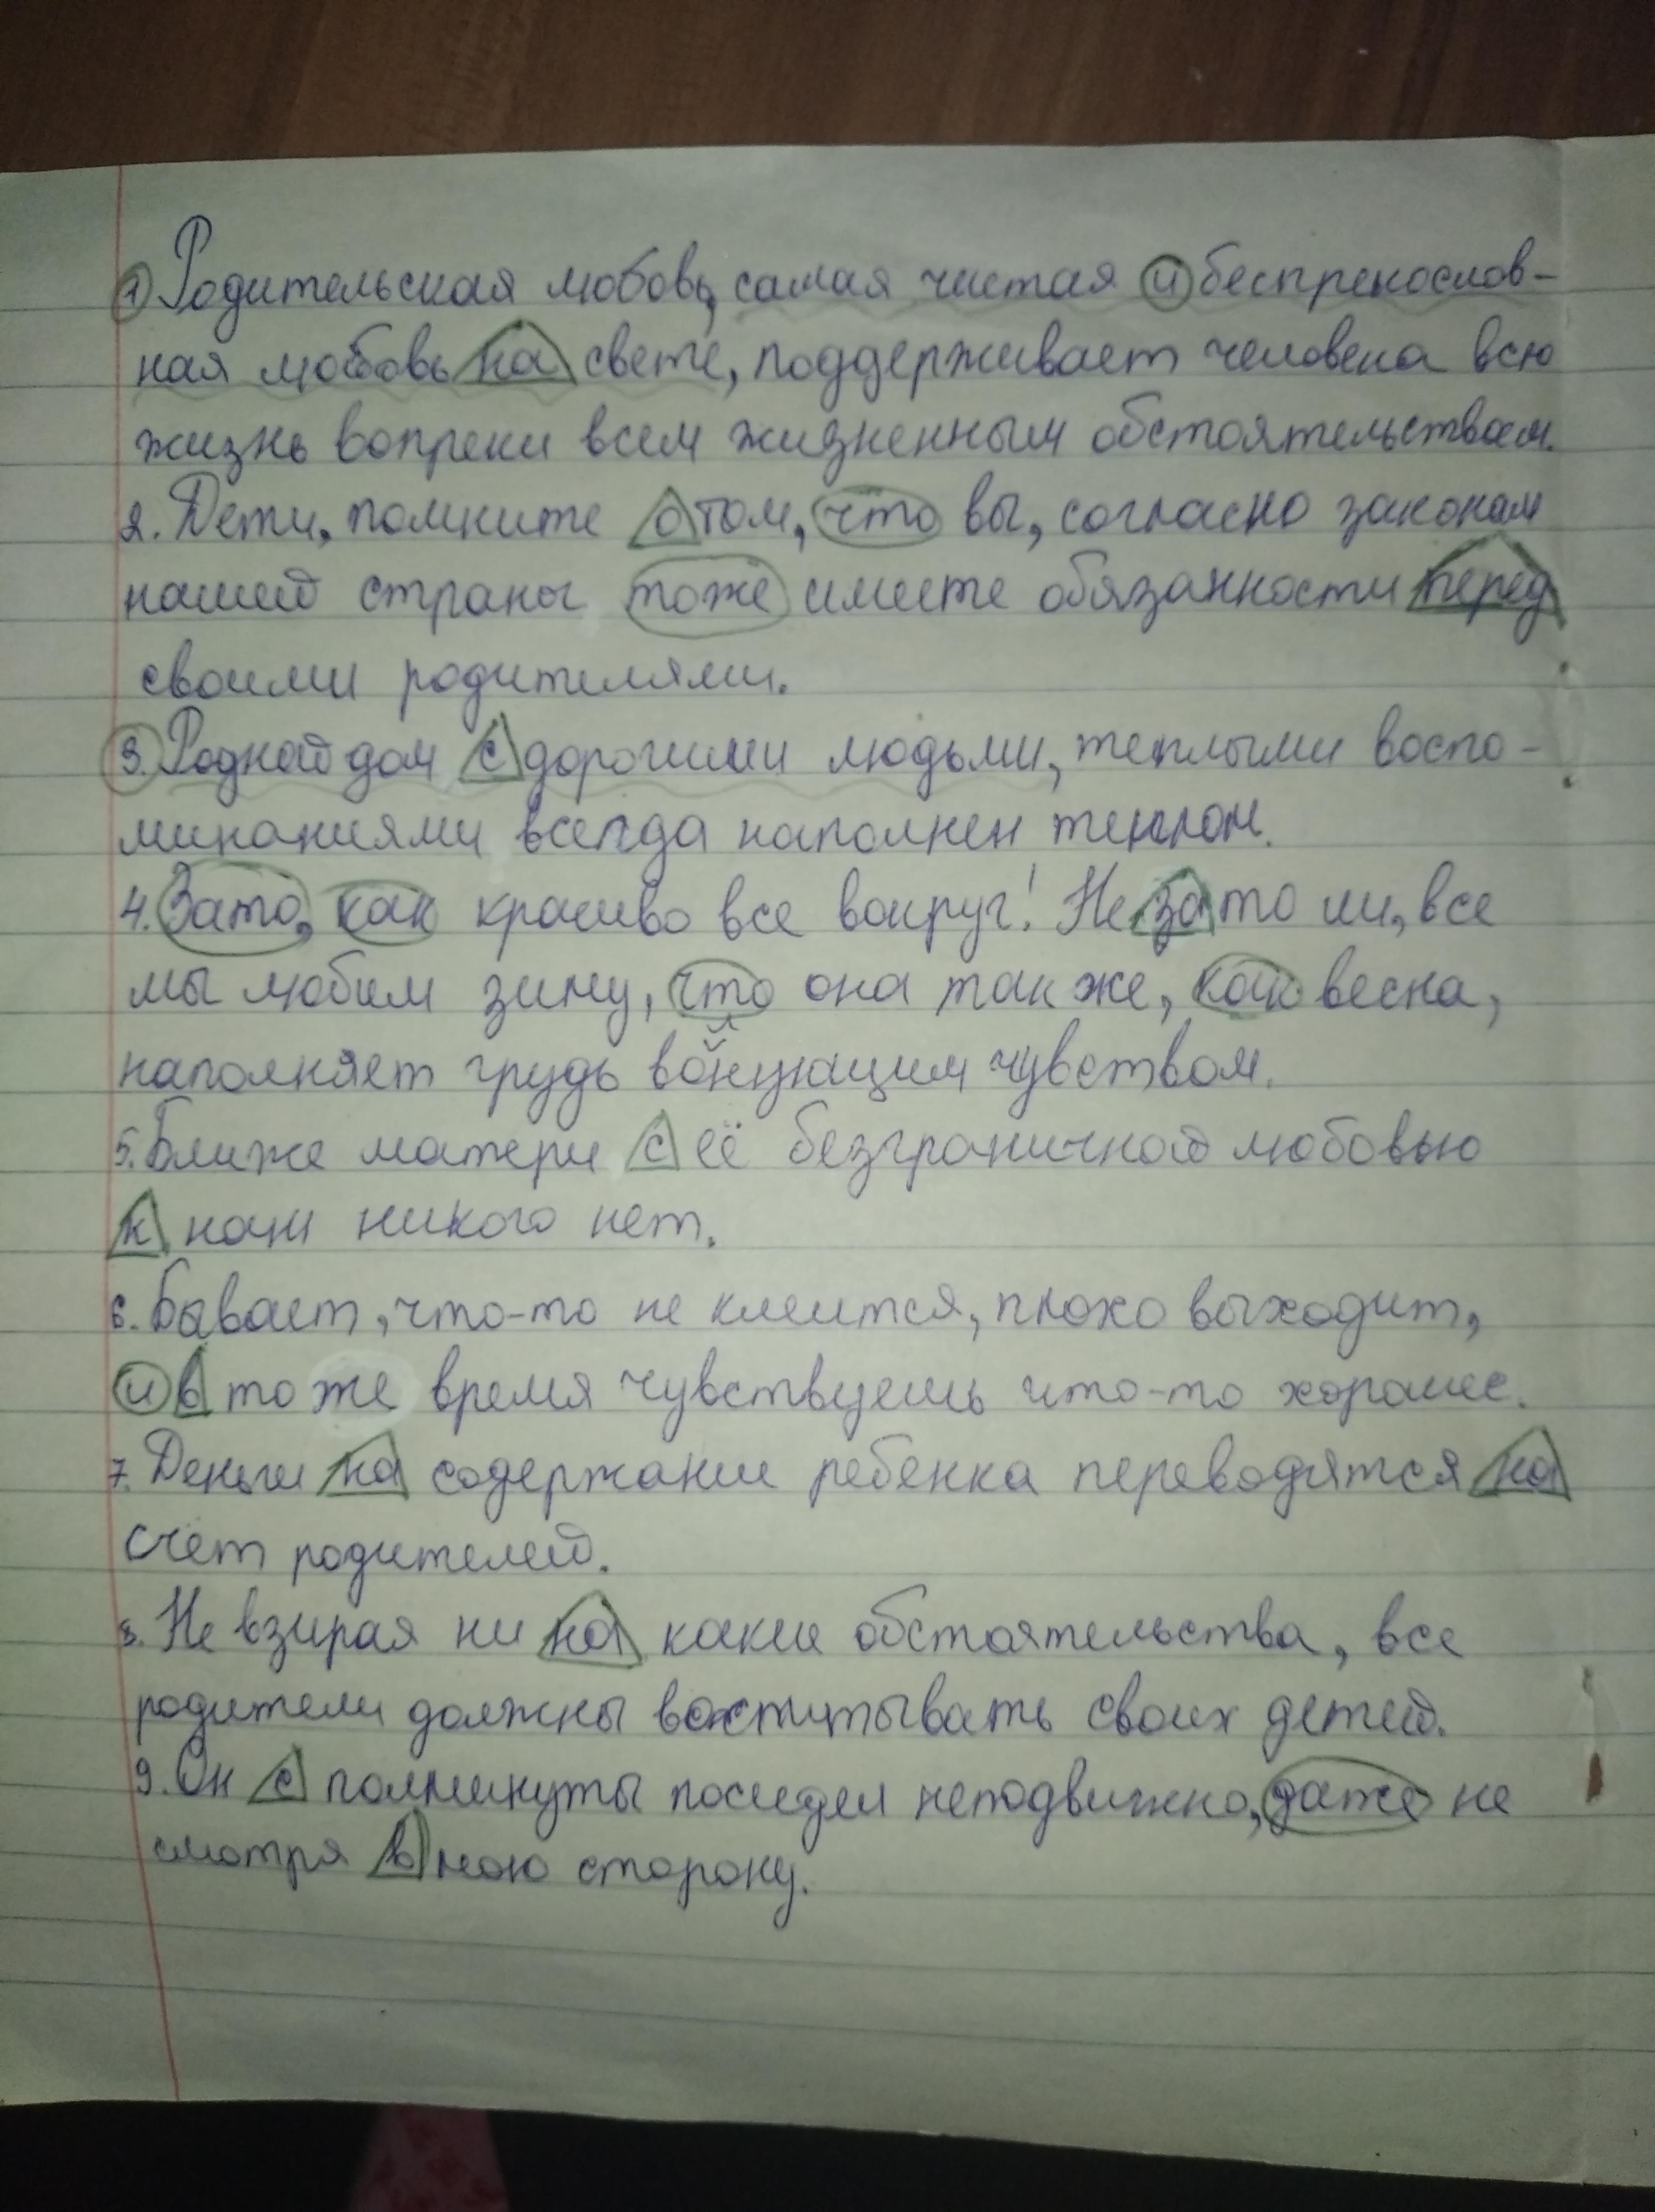 1) Родительская любовь, самая чистая и беспрекослов-
ная любовь на свете, поддерживает человека всю
жизнь вопреки всем жизненным обстоятельствам.
2. Дети, помните о том, что вы, согласно законам
нашей страны тоже имеете обязанности перед
своими родителями.
3. Родной дом с дорогими людьми, теплыми воспо-
минаниями всегда наполнен теплом.
4. Зато, как красиво все вокруг! Не за то ли, все
мы любим зиму, что она так же, как весна,
наполняет грудь волнующим чувством.
5. Ближе матери с её безграничной любовью
к нам никого нет.
6. Бывает, что-то не клеится, плохо выходит,
и в то же время чувствуешь что-то хорошее.
7. Деньги на содержание ребенка переводятся на
счет родителей.
8. Не взирая ни на какие обстоятельства, все
родители должны воспитывать своих детей.
9. Он с полминуты посидел неподвижно, даже не
смотря в мою сторону.